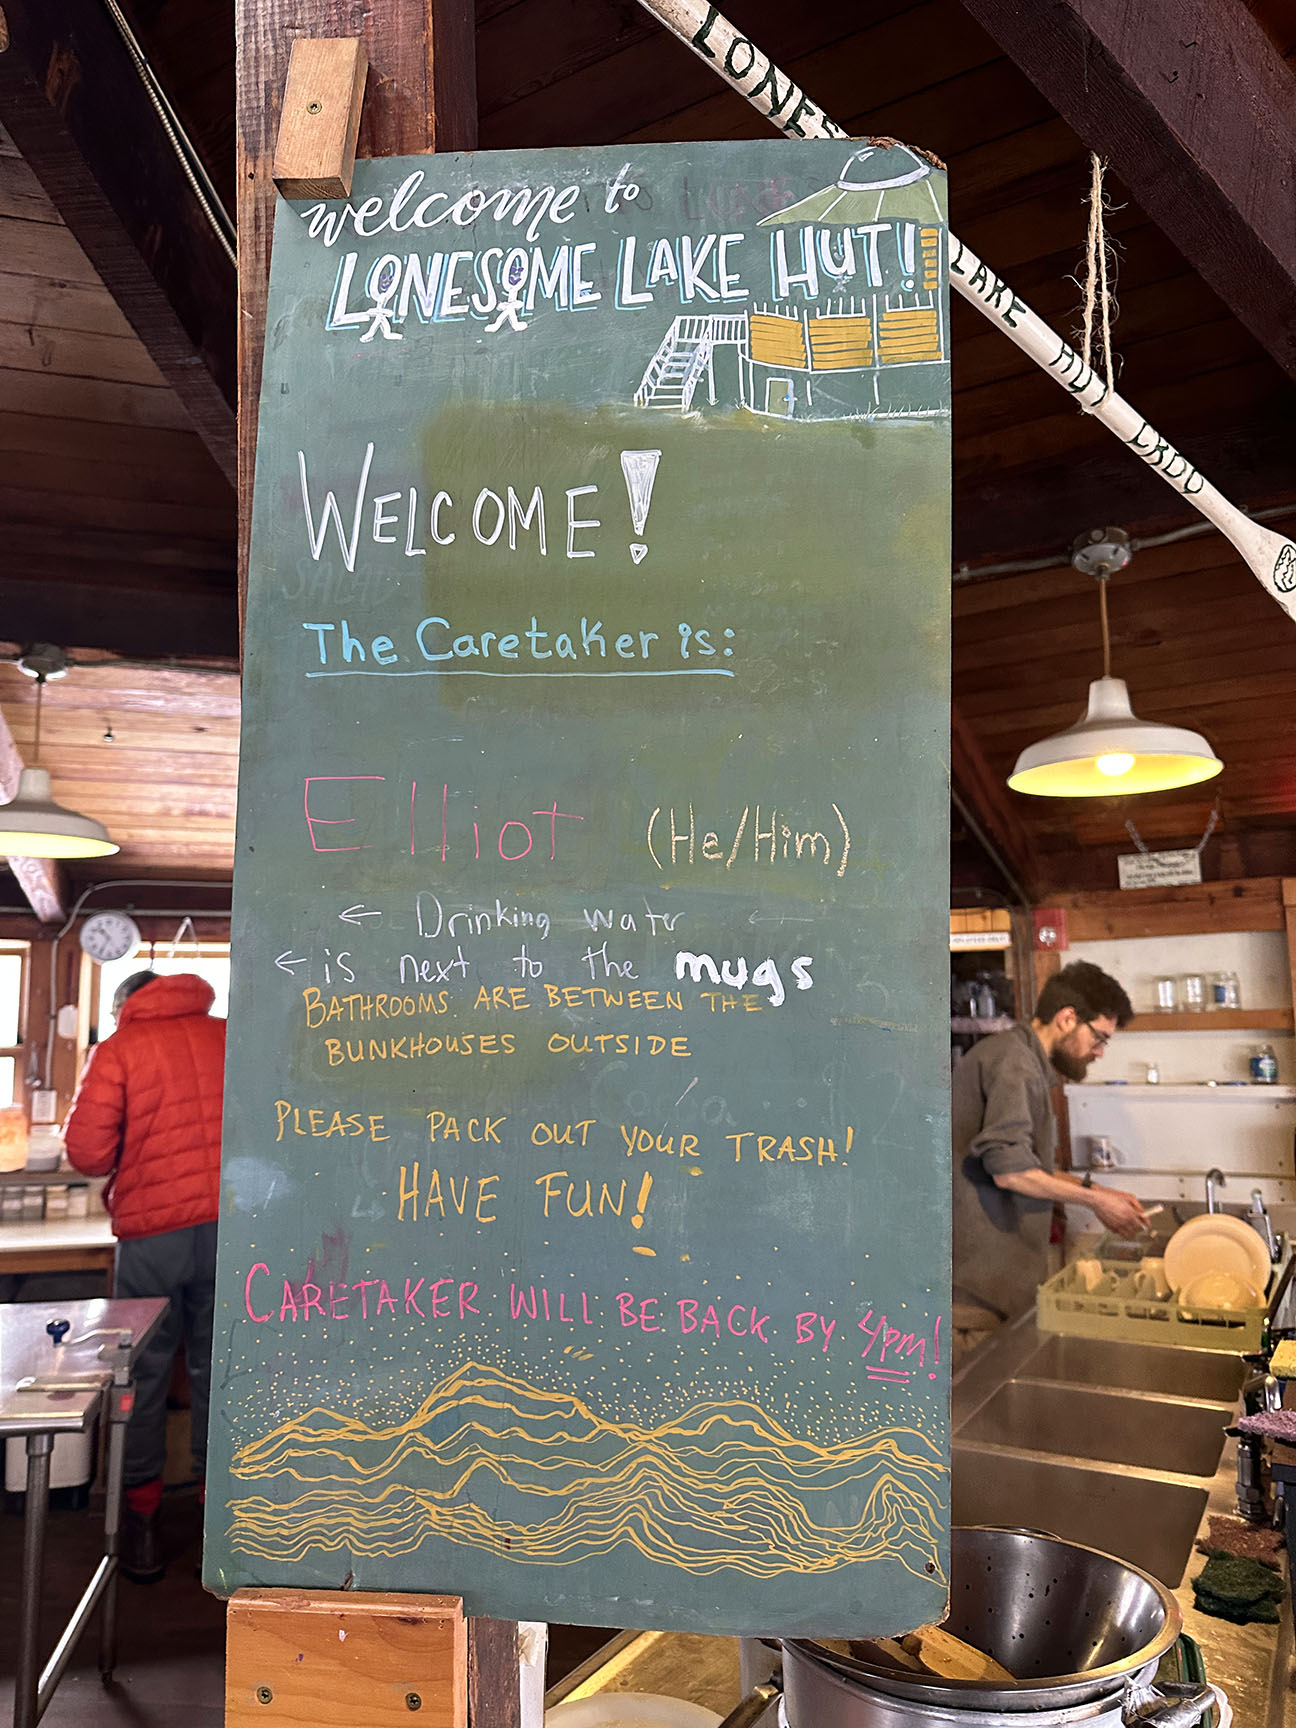 LONES
LAKE HUT CROO
welcome to
LONESOME LAKE HUT!
WELCOME!
SALAD
The Caretaker is:
Elliot (He/Him)
← Drinking water ←
← is next to the mugs
BATHROOMS ARE BETWEEN THE
BUNKHOUSES OUTSIDE
PLEASE PACK OUT YOUR TRASH!
HAVE FUN!
CARETAKER WILL BE BACK BY 4pm!